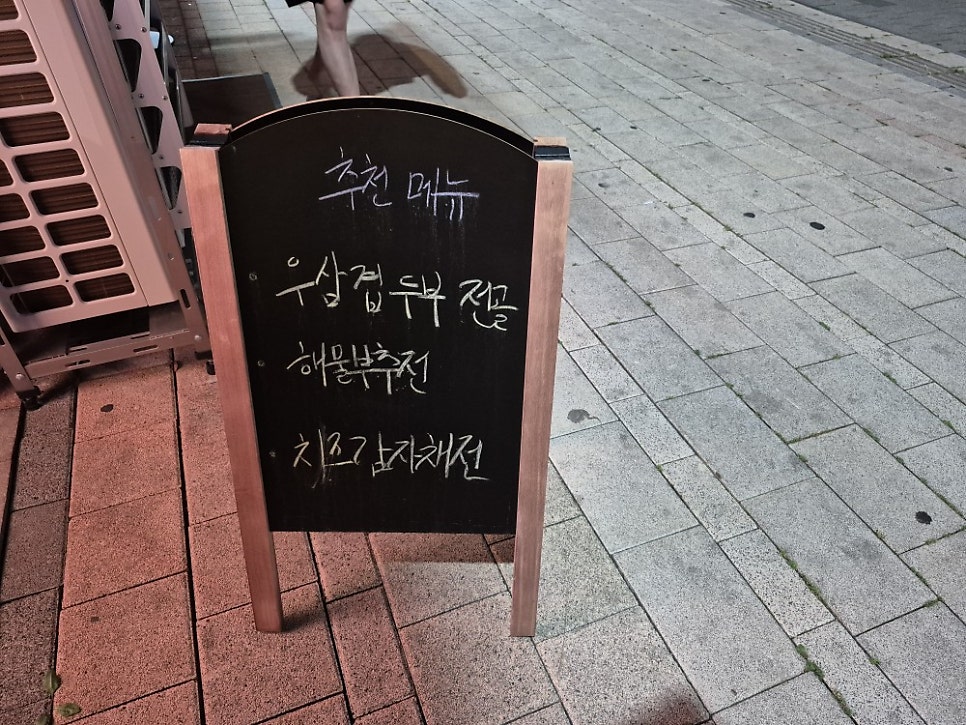 추천 메뉴
우삼겹 두부 전골
해물부추전
치즈감자채전